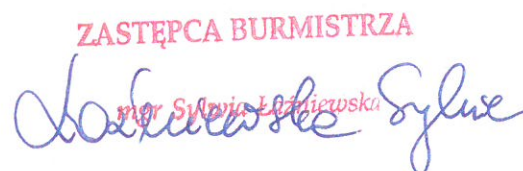 ZASTĘPCA BURMISTRZA
mgr Sylwia Łaźniewska
Łaźniewska Sylwia